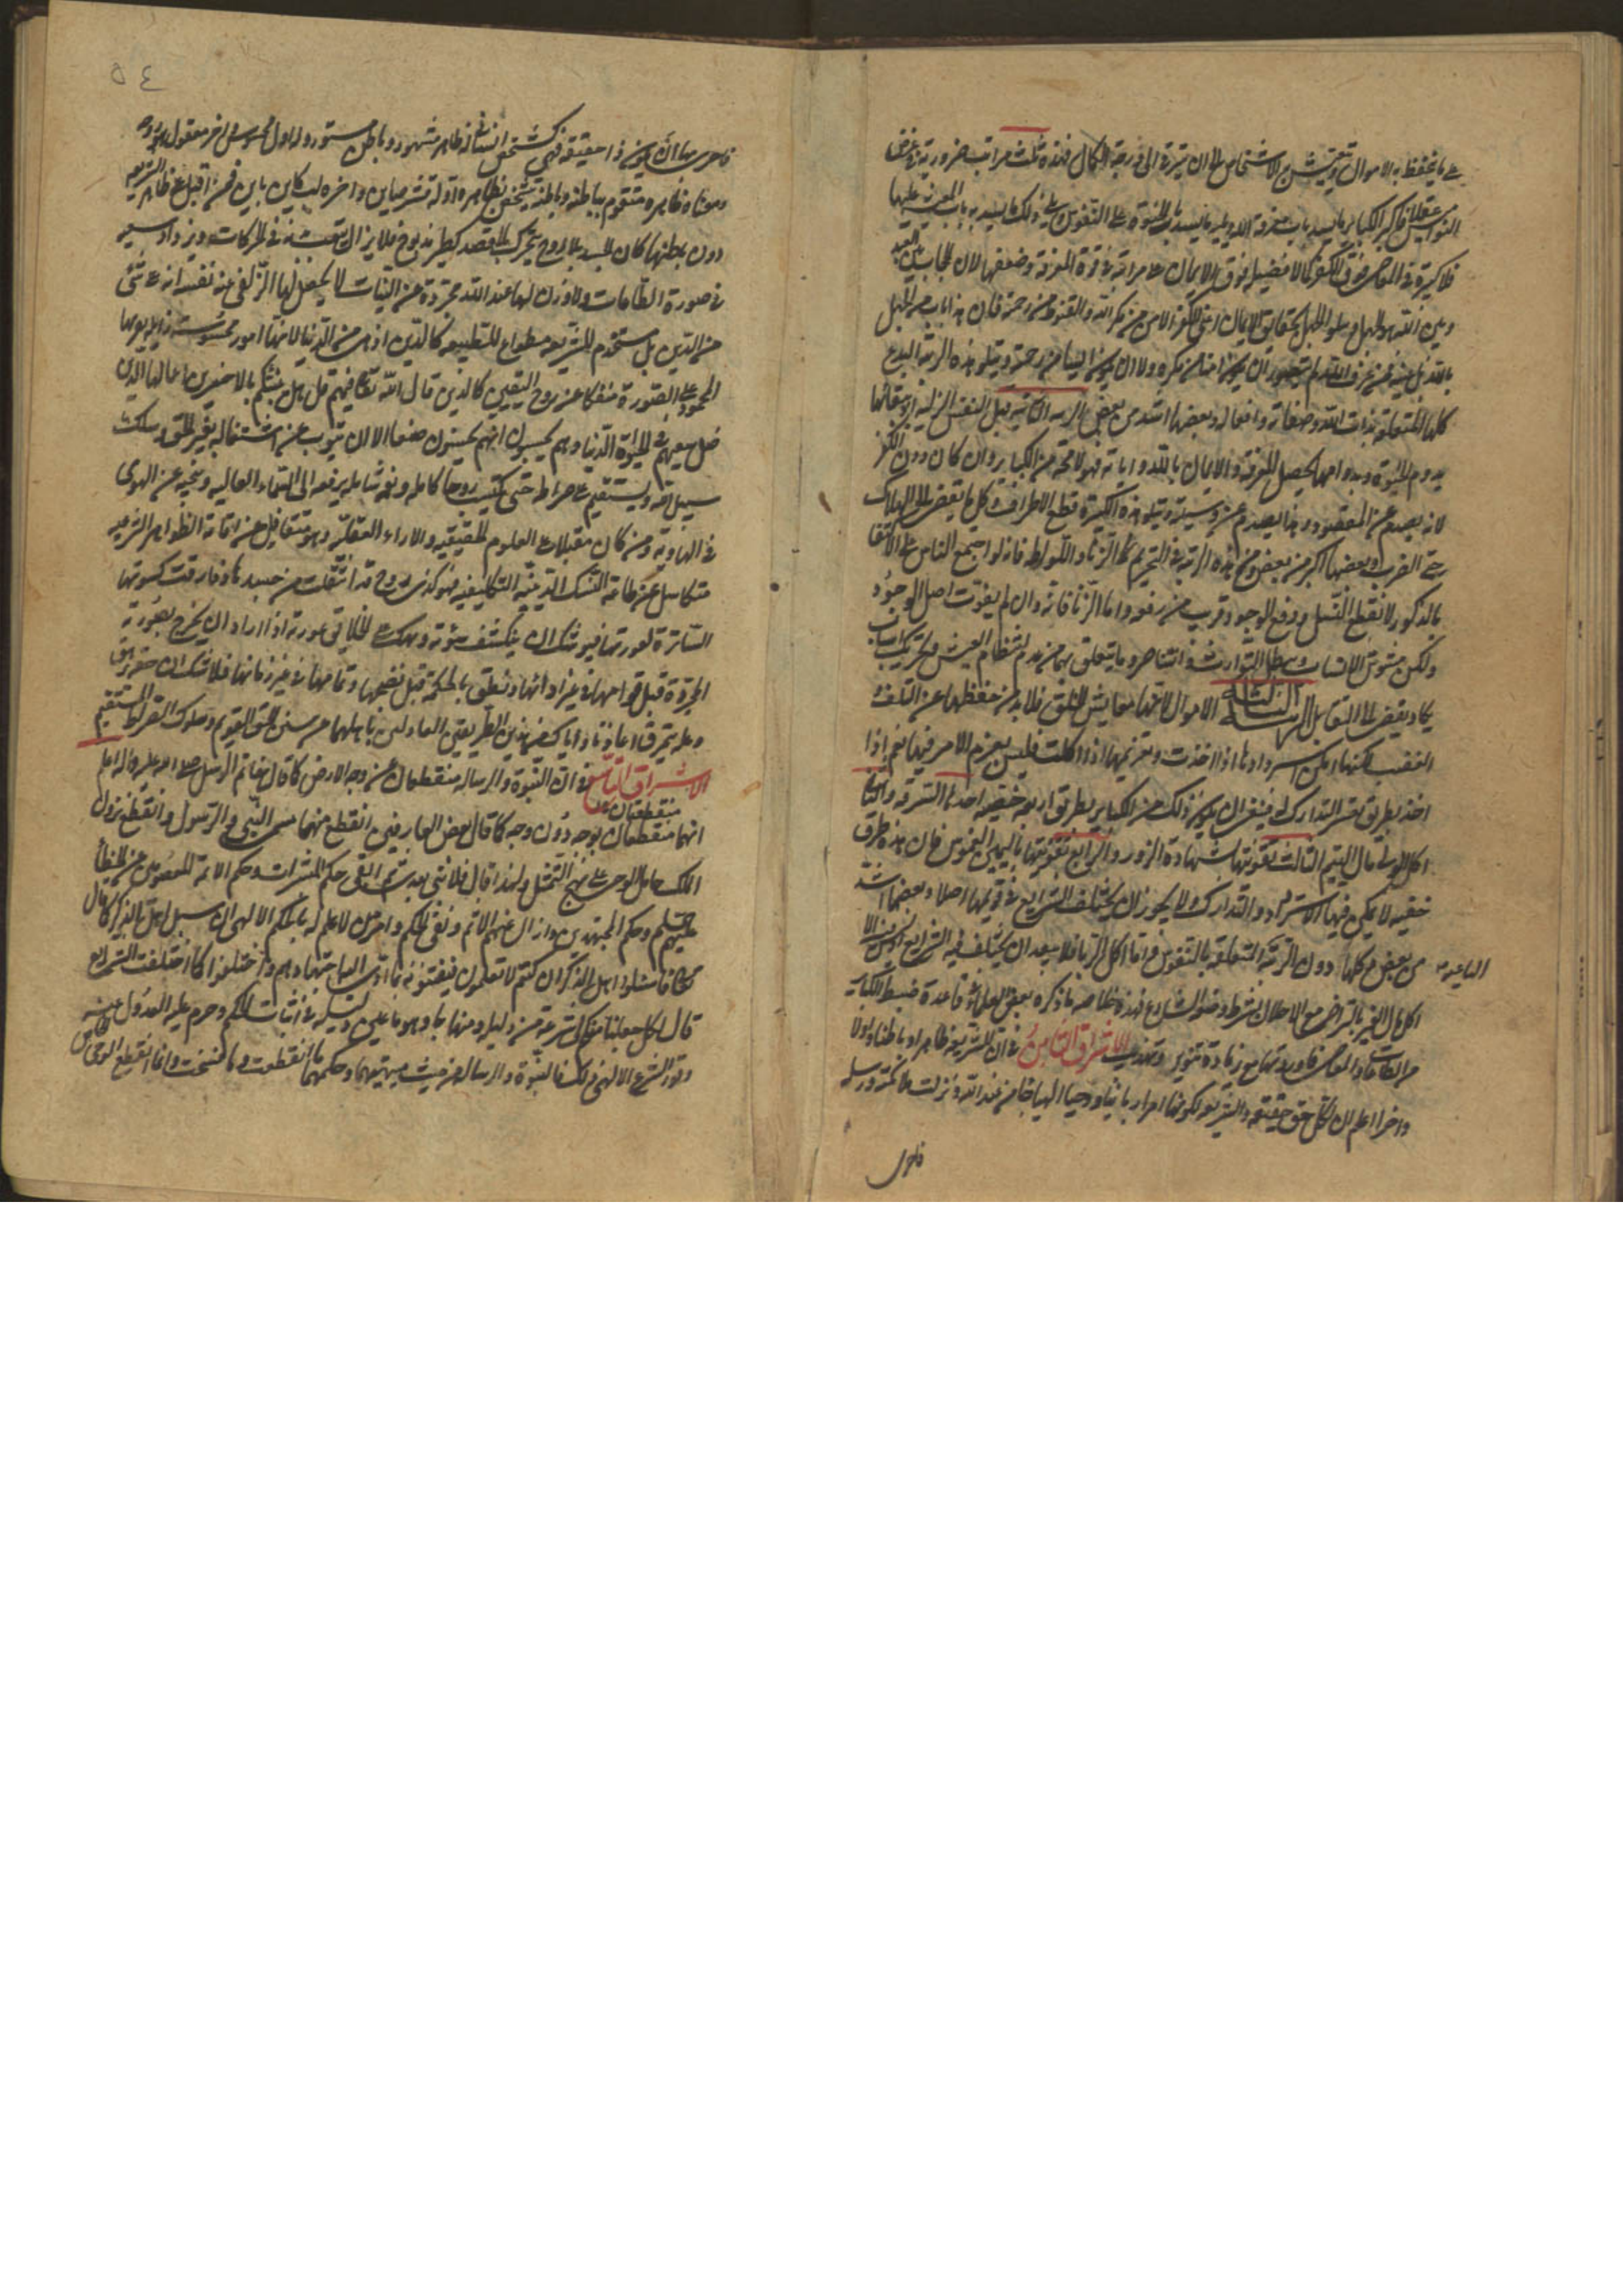 على ما يحفظ به الاموال ويعيش به الاشخاص الى ان يترقى الى درجة الكمال فهذه ثلث مراتب ضرورية في غرض
النواميس عقلا فاكبر الكبائر ما يسد باب معرفة الله ويليه ما يسد باب الحيوة على النفوس ويلي ذلك ما يسد به باب المعيشة عليها
فلا كبيرة في المعاصي فوق الكفر كما لا فضيلة فوق الايمان على مراتبه في قوة المعرفة وضعفها لان الحجاب بين العبد
وبين الله هو الجهل ويتلو الجهل بحقائق الايمان اعني الكفر الامن من مكر الله والقنوط من رحمته فان هذا باب من الجهل
بالله بل عينه فمن عرف الله لم يتصور ان يكون امنا من مكره ولا ان يكون ايسا من رحمته ويتلو هذه الرتبة البدع
كلها المتعلقة بذات الله وصفاته وافعاله وبعضها اشد من بعض المرتبة الثانية قتل النفس الزكية اذ ببقائها
يدوم الحيوة وبدوامها يحصل المعرفة والايمان بالله واياته فهو لا محة من الكبائر وان كان دون الكفر
لانه يصدم عن المقصود وهذا يصدم عن وسيلته ويتلو هذه الكبيرة قطع الاطراف وكل ما يفضى الى الهلاك
حتى الضرب وبعضها اكبر من بعض وفي هذه الرتبة في التحريم الزنا واللواط فانه لو اجتمع الناس على الاكتفا
بالذكور لانقطع النسل ودفع الوجود قريب من رفعه واما الزنا فانه وان لم يفوت اصل الوجود
ولكن يشوش الانساب ويبطل التوارث والتناصر وما يتعلق بهما من عدم انتظام العيش وتحريك اسباب
يكاد يفضى الى التقاتل المرتبة الثالثة الاموال لانها معايش الخلق فلا بد من حفظها عن التلف
الغضب لكنها امكن استردادها اذا اخذت وتغريمها اذا اكلت فليس يعظم الامر فيها نعم اذا
اخذ بطريق يعسر التدارك له فينبغي ان يكون ذلك من الكبائر بطريق اربعة خفية احدها السرقة والثانى
اكل الولي مال اليتيم الثالث تفويتها بشهادة الزور والرابع تفويتها باليمين الغموس فان هذه طرق
خفية لا يمكن فيها الاسترداد والتدارك ولا يجوز ان يختلف الشرايع في تحريمها اصلا وبعضها اشد
من بعض وكلها دون الرتبة المتعلقة بالنفوس واما اكل الربا فلا يبعد ان يختلف فيه الشرايع اذ ليس فيه الا
اكل مال الغير بالتراضي مع الاخلال بشرط وضعه الشارع فهذه خلاصة ما ذكره بعض العلماء في قاعدة ضبط الكبائر
من الطاعات والمعاصى فاوردتها مع زيادة تنوير وتهذيب الاشراق الثامن في ان للشريعة ظاهرا وباطنا واولا
واخرا اعلم ان لكل حق حقيقة والشريعة لكونها امرا ربانيا ووحيا الهيا جاء من عند الله ونزلت ملائكته ورسله
٥٤
فاحرى بها ان يكون ذا حقيقة فهي كشخص انسانى له ظاهر مشهود وباطن مستور وله اول محسوس واخر معقول هو روحه
ومعناه فظاهره متقوم بباطنه وباطنه يتشخص بظاهره اوله قشر صاين واخره لب كاين باين فمن اقبل على ظاهر الشريعة
دون باطنها كان كجسد بلا روح يتحرك بلا قصد كطير مذبوح فلا يزال يتعب بدنه في الحركات ويزداد سعيه
في صورة الطاعات ولا وزن لها عند الله مجردة عن النيات لا يحصل لها الزلفى عند نفسه انه على شئ
من الدين بل مستخدم للشريعة مطواع للطبيعة كالذين اذهبتم من الدنيا لانها امور محسوسة زايلة يومها
الجمود على الصورة منفكا عن روح اليقين كالذين قال الله تعالى فيهم قل هل ننبئكم بالاخسرين اعمالا الذين
ضل سعيهم في الحيوة الدنيا وهم يحسبون انهم يحسنون صنعا الا ان يتوب عن اشتغاله بغير الحق ويسلك
سبيل الله ويستقيم على صراطه حتى يكتسب روحا كاملة ونفسا شاملة يرفعه الى السماء العالية وينجيه عن الهوى
في الهاوية ومن كان مقبلا على العلوم الحقيقية والاراء العقلية وهو متغافل عن اقامة الظواهر الشرعية
متكاسل عن طاعة النسك الدينية التكليفية فهو كذى روح قد انتقلت من جسدها وفارقت كسوتها
الساترة لعورتها فيوشك ان ينكشف سوءته ويهتك على الخلايق عورته اذا اراد ان يخرج بصورة
المجردة قبل قوامها في غير اوانها ونطق بالحكمة قبل نضجها وتمامها في غير زمانها فلا شك ان
وعليه تحرق اعاذنا واياك من هذين الطريقين العادلين باهلهما من سنن الحق القويم وسلوك الصراط المستقيم
الاشراق التاسع في ان النبوة والرسالة منقطعتان عن وجه الارض كما قال خاتم الرسل صلى الله عليه واله اعلم
منقطعتان
انهما منقطعتان بوجه دون وجه كما قال بعض العارفين انقطع منهما مسمى النبي والرسول وانقطع نزول
الملك حامل الوحي على نهج التمثل ولهذا قال فلا نبى بعدى ثم ابقى حكم المبشرات وحكم الائمة المعصومين عن الخطأ
عليهم السلم وحكم المجتهدين وازال عنهم الاسم وبقى الحكم وامر من لا علم له بالحكم الالهى ان يسئل اهل الذكر كما قال
تعالى فاسئلوا اهل الذكر ان كنتم لا تعلمون فيفتونه بما ادى اليه اجتهادهم وان اختلفوا كما اختلفت الشرايع
قال لكل جعلنا منكم شرعة من دليله ومنهاجا وهو ما عين دليله في اثبات الحكم وحرم عليه العدول عنه
وقرر الشرع الالهى ذلك فالنبوة والرسالة من حيث ماهيتهما وحكمهما ما انقطعت وما نسخت وانما انقطع الوحى الخاص